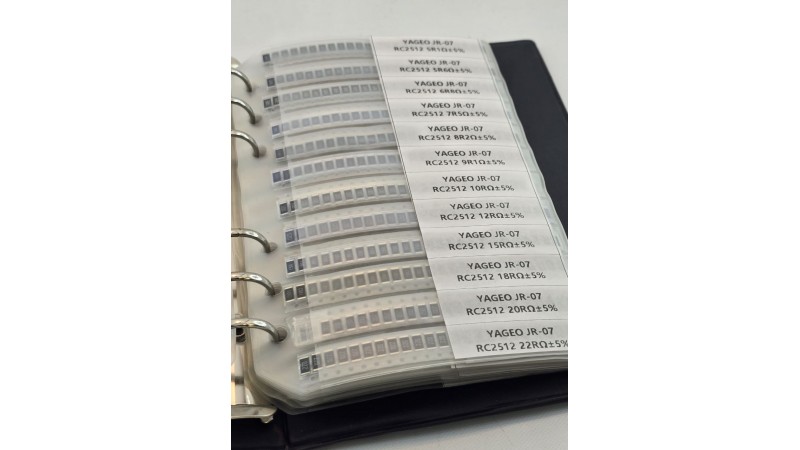 YAGEO JR-07
RC2512 5R1Ω±5%
YAGEO JR-07
RC2512 5R6Ω±5%
YAGEO JR-07
RC2512 6R8Ω±5%
YAGEO JR-07
RC2512 7R5Ω±5%
YAGEO JR-07
RC2512 8R2Ω±5%
YAGEO JR-07
RC2512 9R1Ω±5%
YAGEO JR-07
RC2512 10RΩ±5%
YAGEO JR-07
RC2512 12RΩ±5%
YAGEO JR-07
RC2512 15RΩ±5%
YAGEO JR-07
RC2512 18RΩ±5%
YAGEO JR-07
RC2512 20RΩ±5%
YAGEO JR-07
RC2512 22RΩ±5%